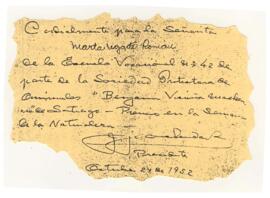 Cordialmente para la Señorita
Marta Ugarte Román
de la Escuela Vocacional Nº 42 de
parte de la Sociedad Protectora de
Animales "Benjamín Vicuña Mackenna"
de Santiago - Premio en la Semana
de la Naturaleza -
Presidente
Octubre 24 de 1952